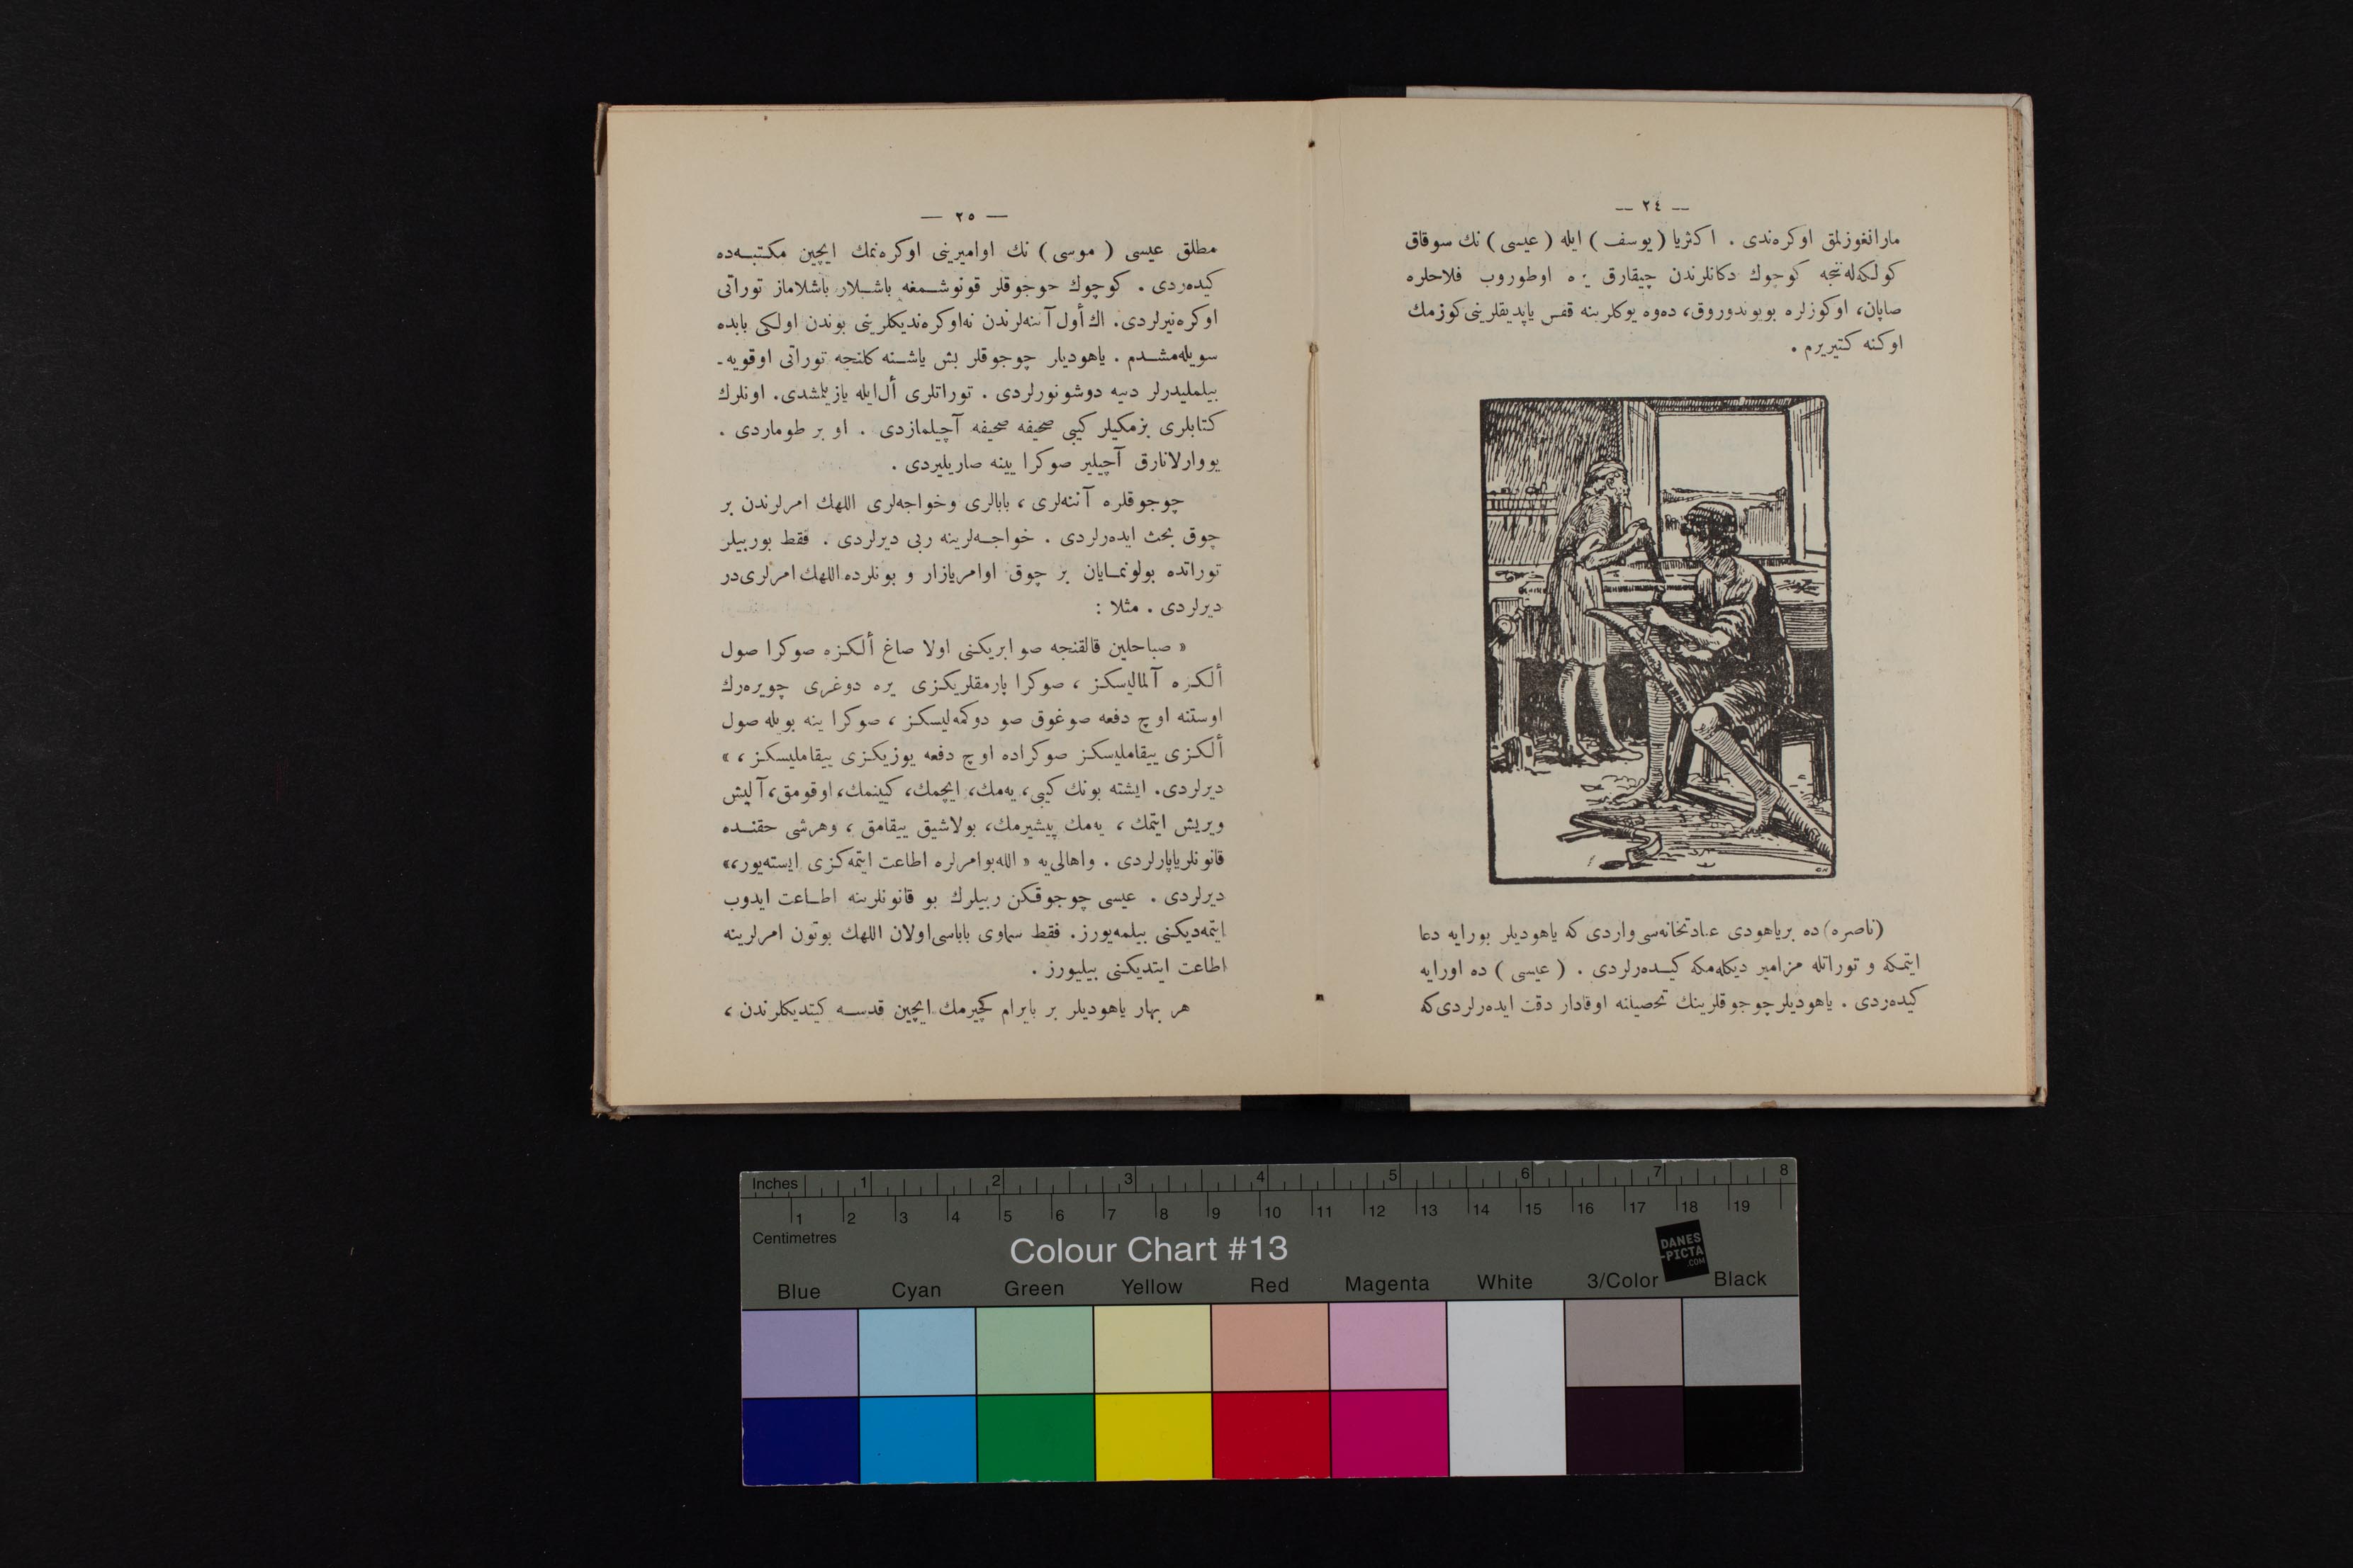 — ٢٤ —
مارانغوزلق اوكره‌ندی . اكثریا (یوسف) ایله (عیسی) نك سوقاق
كولكه‌له‌نجه كوچوك دكانلرندن چیقارق یره اوطوروب فلاحلره
صاپان، اوكوزلره بویوندوروق، ده‌وه یوكلرینه قفس یاپدیقلرینی كوزمك
اوكنه كتیریرم .
(ناصره) ده بر یاهودی عبادتخانه‌سی واردی كه یاهودیلر بورایه دعا
ایتمكه و توراتله مزامیر دیكله‌مكه كیده‌رلردی . (عیسی) ده اورایه
كیده‌ردی . یاهودیلر چوجوقلرینك تحصیلنه اوقادار دقت ایده‌رلردی كه
— ٢٥ —
مطلق عیسی (موسی) نك اوامیرینی اوكره‌نمك ایچین مكتبه‌ده
كیده‌ردی . كوچوك چوجوقلر قونوشمغه باشلار باشلاماز توراتی
اوكره‌نیرلردی. اك أول آننه‌لرندن نه‌اوكره‌ندیكلرینی بوندن اولكی بابده
سویله‌مشدم . یاهودیلر چوجوقلر بش یاشنه كلنجه توراتی اوقویه-
بیلملیدرلر دییه دوشونورلردی . توراتلری أل ایله یازیلمشدی. اونلرك
كتابلری بزمكیلر كیبی صحیفه صحیفه آچیلمازدی . او بر طوماردی .
یووارلانارق آچیلیر صوكرا یینه صاریلیردی .
چوجوقلره آننه‌لری ، بابالری وخواجه‌لری اللهك امرلرندن بر
چوق بحث ایده‌رلردی . خواجه‌لرینه ربی دیرلردی . فقط بوربیلر
توراتده بولونمایان بر چوق اوامریازار و بونلرده اللهك امرلری‌در
دیرلردی . مثلا :
« صباحلین قالقنجه صو ابریكنی اولا صاغ ألكزه صوكرا صول
ألكزه آلمالیسكز ، صوكرا پارمقلریكزی یره دوغری چویره‌رك
اوستنه اوچ دفعه صوغوق صو دوكمه‌لیسكز ، صوكرا ینه بویله صول
ألكزی ییقاملیسكز صوكراده اوچ دفعه یوزیكزی ییقاملیسكز ، »
دیرلردی. ایشته بونك كیبی، یه‌مك، ایچمك، كیینمك، اوقومق، آلیش
ویریش ایتمك ، یه‌مك پیشیرمك، بولاشیق ییقامق ، وهرشی حقنده
قانونلر یاپارلردی . واهالی‌یه « الله بوامرلره اطاعت ایتمه‌كزی ایسته‌یور، »
دیرلردی . عیسی چوجوقكن ربیلرك بو قانونلرینه اطاعت ایدوب
ایتمه‌دیكنی بیلمه‌یورز. فقط سماوی باباسی اولان اللهك بوتون امرلرینه
اطاعت ایتدیكنی بیلیورز .
هر بهار یاهودیلر بر بایرام كچیرمك ایچین قدسه كیتدیكلرندن ،
Inches 1 2 3 4 5 6 7 8
1 2 3 4 5 6 7 8 9 10 11 12 13 14 15 16 17 18 19
Centimetres
Colour Chart #13
DANES
-PICTA
.COM
Blue Cyan Green Yellow Red Magenta White 3/Color Black